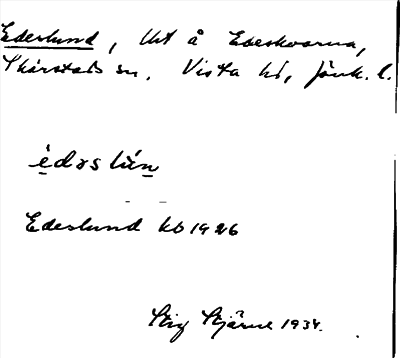 Edeslund, lht å Edeskvarna,
Skärstads sn. Vista hd, Jönk. l.
èdəs lún
Edeslund kb 1926
Stig Stjärne 1934.